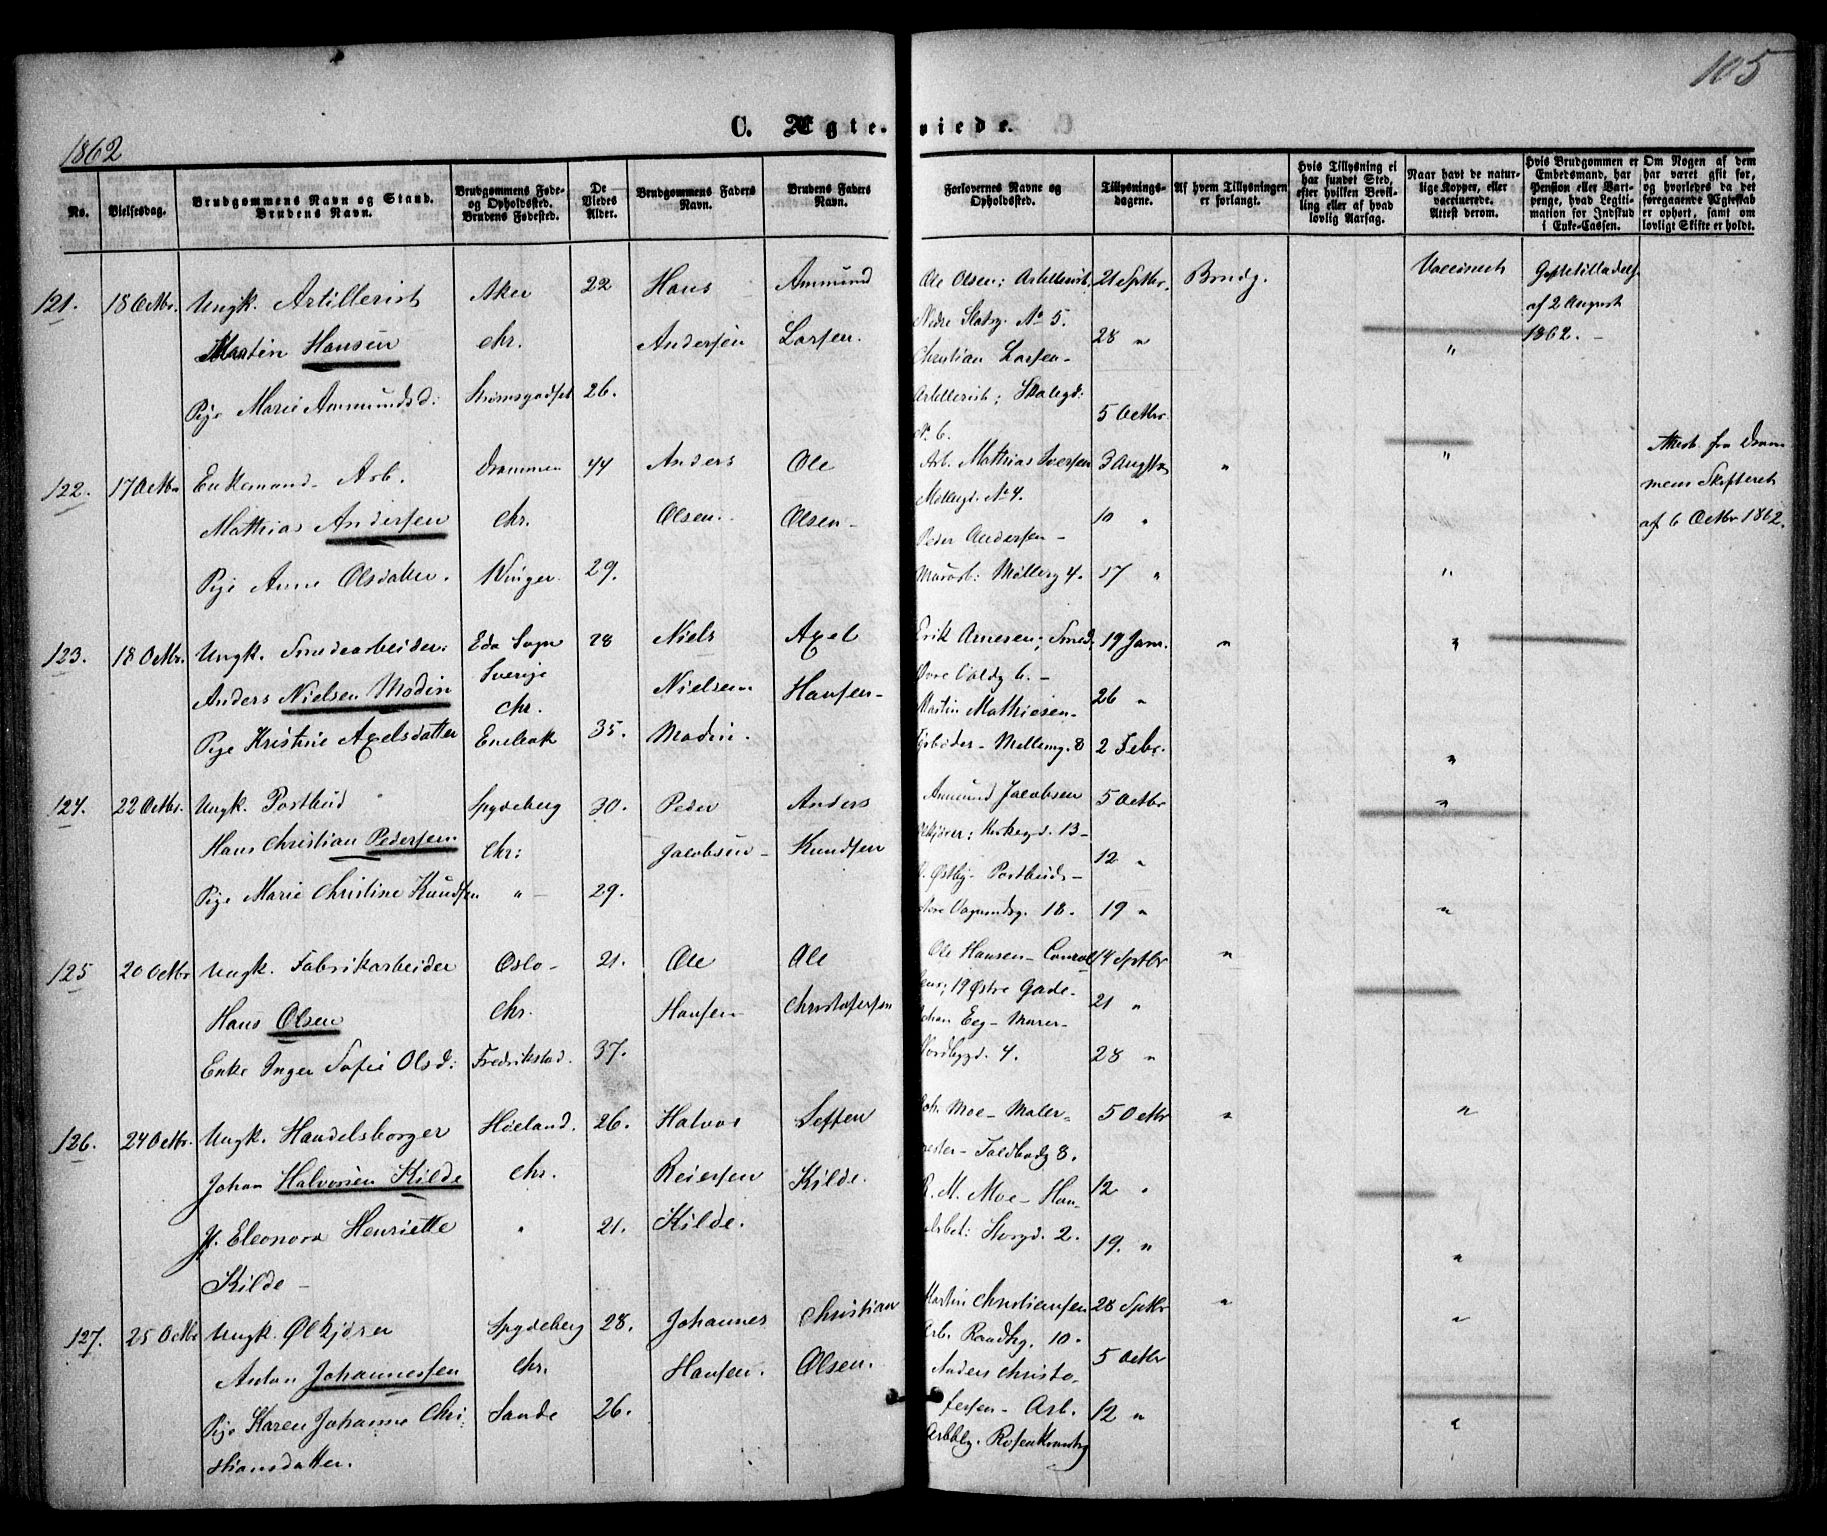 105
1862
C. Ægte-viede.
No.
Vielsesdag.
Brudgommens Navn og Stand.
Brudens Navn.
Brudgommens Føde-
og Opholdssted.
Brudens Fødested.
De
Viedes
Alder.
Brudgommens Faders
Navn.
Brudens Faders
Navn.
Forlovernes Navne og
Opholdssted.
Tillysnings-
dagene.
Af hvem Tillysningen
er forlangt.
Hvis Tillysning ei
har fundet Sted,
efter hvilken Bevil-
ling eller af hvad
lovlig Aarsag.
Naar havt de natur-
lige Kopper, eller
vaccinerede.
Attest derom.
Hvis Brudgommen er
Embedsmand, har
Pension eller Vart-
penge, hvad Legiti-
mation for Indskud
i Enke-Cassen.
Om Nogen af dem
har været gift før,
og hvorledes da det
foregaaende Ægteskab
er ophørt, samt om
lovligt Skifte er holdt.
121. 18 Octbr. Ungk. Artillerist Aker 22 Hans Ammund Ole Olsen; Artillerist, 21 Sptbr. Brudg. Vaccineret Giftetilladelse
af 2 August
Martin Hansen Chr. Andersen Larsen. Nedre Slotsg. No 5. 28 " " 1862. -
Christian Larsen-
Pige Marie Ammundsd: Strømsgodset 26. Artillerist; 5 Octbr.
No 6.
122. 17 Octbr Enkemand- Arb. Drammen 44 Anders Ole Arb. Mathias Iversen 3 August " " Attest. fra Dram
Møllergd. No 4. mens Skifteret
Mathias Andersen Chr. Olsen. Olsen- 10 " " af 6 Octbr 1862.
Peder Andersen-
Pige Anne Olsdatter. Vinger 29. Møllerg 4. 17 " "
123. 18 Octbr. Ungk. Smedearbeider: Eda Sogn 28 Niels Axel Erik Arnesen; Smed. 19 Janr. " "
Sverige Øvre Voldg 6. -
Anders Nielsen Modin Chr. Nielsen Hansen- Martin Mathiesen- 26 "
Pige Kristine Axelsdatter Enebak 35. Modin. Fyrbøder- Mellemg. 8 2 Febr. "
124. 22 Octbr. Ungk. Postbud Spydeberg 30. Peder Anders Ammund Jacobsen 5 Octbr "
13-
Hans Christian Pedersen Chr: Jacobsen- Knudsen 12 "
Østby- Postbud-
Pige Marie Christine Knudsen "- 29. 18. 19 " "
125 20 Octbr Ungk. Fabrikarbeider Oslo- 21. Ole Ole Ole Hansen- 14 Sptbr "
19 Østre Gade-
Hans Olsen Chr. Hansen Christofersen 21 "
Johan Eeg- Murer-
Enke Inger Sofie Olsd: Fredrikstad. 37. 4. 28 "
126. 24 Octbr. Ungk. Handelsborger Høeland. 26. Halvor Joh. Moe- Maler- 5 Octbr " "
mester- 8.
Johan Halvorsen Kilde Chr. Reiersen Kilde. R. M. Moe- Han- 12 "
Storgd. 2.
Jf. Eleonora Henriette " 21. Kilde. 19. " "
Kilde-
127. 25 Octbr Ungk. Ølkjører Spydeberg 28. Johannes Christian Martin Christiansen 28 Sptbr " "
Arb. 10.
Anton Johannessen Chr. Hansen. Olsen. Anders Christo- 5 Octbr
Pige Karen Johanne Chri- Sande 26. fersen- Arb. 12 " "
stiansdatter.